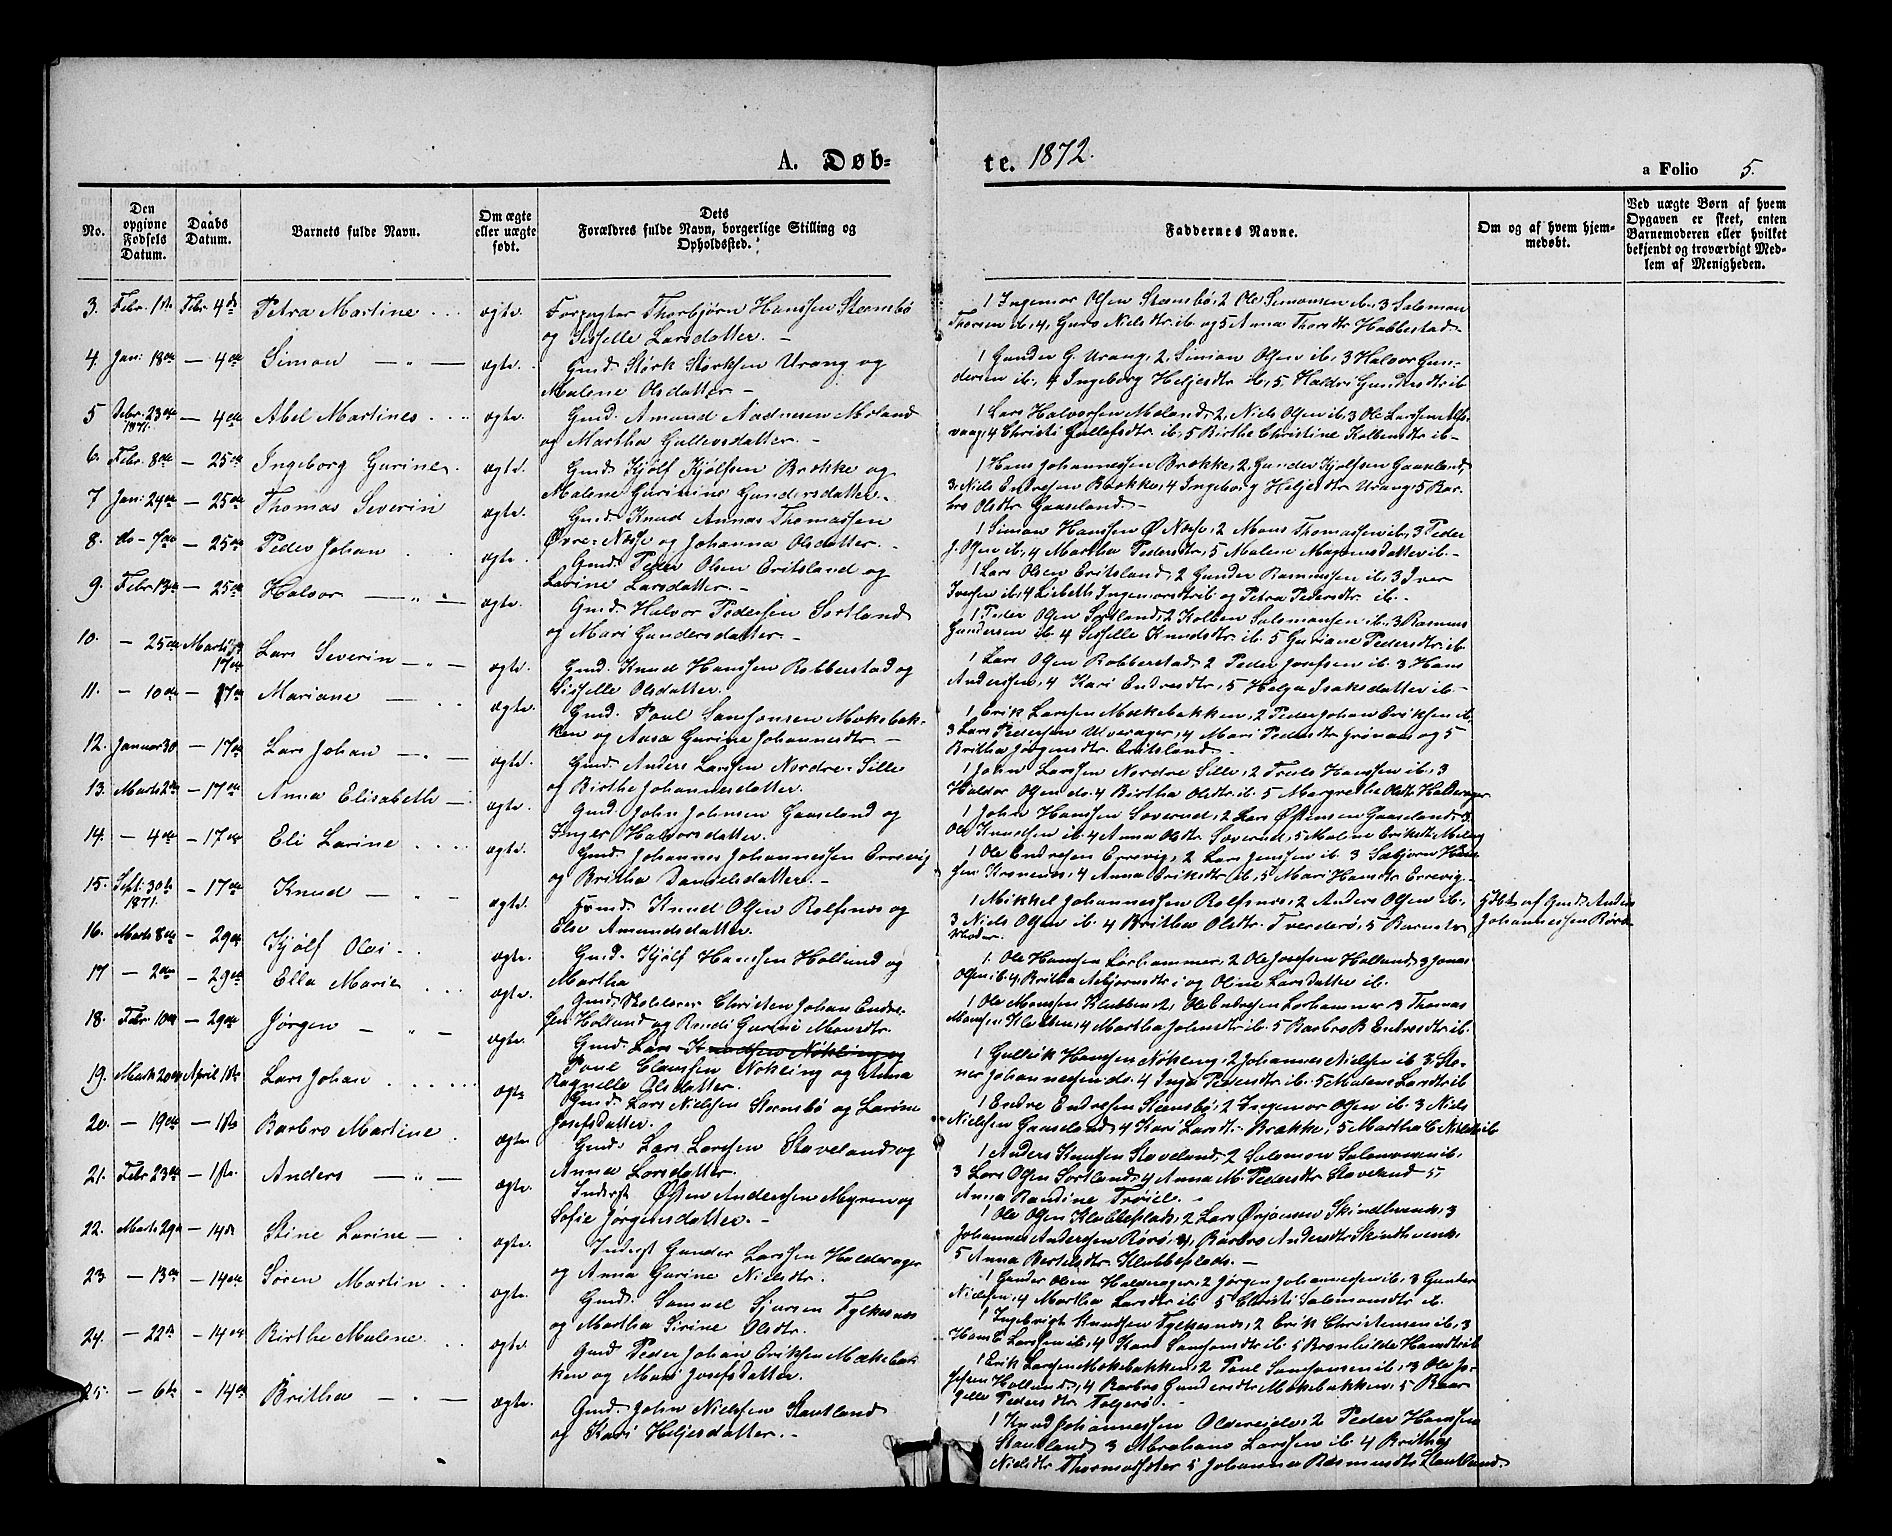 A. Døb-
te. 1872.
a Folio 5.
No.
Den opgivne Fødsels Datum.
Daabs Datum.
Barnets fulde Navn.
Om ægte eller uægte født.
Dets Forældres fulde Navn, borgerlige Stilling og Opholdssted.
Faddernes Navne.
Om og af hvem hjemmedøbt.
Ved uægte Børn af hvem Opgaven er skeet, enten Barnemoderen eller hvilket bekjendt og troværdigt Medlem af Menigheden.
3. Febr. 1ste Febr. 4de Petra Martine ægte.
Forpagter Thorbjørn Hanssen Stemsbø
og Sisselle Larsdatter. -
1 Ingemor Olsen Stemsbø, 2 Ole Simonsen ib. 3 Salomon
Thorsen ib. 4, Guro Nielsdtr. ib. og 5 Anna Thorsdtr. Hobbestad
4. Jan: 18de - 4de Simon — " — ægte.
Gmd. Størk Størksen Urang og
Malene Olsdatter -
1 Gunder G. Urang, 2, Simon Olsen ib. 3 Halvor Gun-
dersen ib, 4 Ingeborg Heljesdtr. ib, 5 Haldri Gundersdtr ib
5 Debr. 23de 1871. - 4de Abel Martines ægte.
Gmd. Amund Aadnesen Moland
og Martha Gullevsdatter. -
1 Lars Halvorsen Moland, 2, Niels Olsen ib. 3 Ole Larssen
vaag, 4 Christi Gullefsdtr. ib, 5 Birthe Christine Kolbensdtr ib
6. Febr. 8de - 25de Ingeborg Gurine. ægte.
Gmd. Kjølf Kjølfsen Brekke og
Malene Gurinine Gundersdatter.
1 Hans Johannessen Brekke, 2, Gunder Kjølfsen Gaasland,
3, Niels Endresen Brekke, 4 Ingeborg Heljesdtr Urang, 5 Bar-
bro Olsdtr. Gaasland. -
7 Jan: 24de - 25de Thomas Severin ægte.
Gmd. Knud Annas Thomassen
Øvre-Næse og Johanna Olsdatter. -
1 Simon Hanssen Ø Næse, 2 Mons Thomassen ib, 3 Peder
J. Olsen ib, 4 Martha Pedersdtr, 5 Malene Magnesdatter ib. -
8. do - 7de - 25de Peder Johan ægte.
Gmd. Peder Olsen Eritsland og
Larine Larsdatter. -
1 Lars Olsen Eritsland, 2 Gunder Rasmussen ib. 3 Iver
Iversen ib, 4 Lisbeth Ingemorsdtr ib og Petra Pedersdtr ib. -
9. Febr 13de - 25de Halvor — " — ægte.
Gmd. Halvor Pedersen Sortland
og Mari Gundersdatter. -
1 Peder Olsen Sortland, 2 Kolben Salomonsen ib. 3 Rasmus
Gundersen ib. 4 Sisselle Knudsdtr. ib. 5 Guriane Pedersdtr. ib.
10. - 25de Marts 17de Lars Severin — " — ægte.
Gmd. Knud Hanssen Robberstad og
Sisselle Olsdatter.
1 Lars Olsen Robberstad, 2 Peder Josefsen ib. 3 Hans
Anderssen, 4 Kari Endresdtr, 5 Helga Isaksdatter ib. -
11. - 10de - 17de Mariane — ægte.
Gmd. Poul Samsonsen Mækebak-
ken og Aasa Gurine Johannesdtr -
1 Erik Larssen Mækebakken, 2 Peder Johan Eriksen ib.
3 Lars Pedersen Ulverager, 4 Mari Pedersdtr. Grønaas og 5
Britha Jørgensdtr. Eritsland. -
12. Januar 30 - 17de Lars Johan — " — ægte.
Gmd. Anders Larssen Nordre-Sille
og Birthe Johannesdatter.
1 John Larssen Nordre Sille, 2 Truls Hanssen ib. 3
Halvor Olsen do. 4 Birtha Olsdtr. ib. 5 Margretha Olsdtr. Haldorager
13. Marts 2den - 17de Anna Elisabeth — ægte.
Gmd John Johnsen Gaasland og
Inger Halvorsdatter.
1 John Hanssen Soverud, 2 Lars Østensen Gaasland, 3
Ole Knudsen ib. 4 Anna Olsdtr. Soverud, 5 Malene Eriksdtr.
14. - 4de - 17de Eli Larine ægte.
Gmd. Johannes Johannessen Errevig
og Britha Danielsdatter. -
1 Ole Endresen Errevig, 2 Lars Jenssen ib. 3 Sæbjørn Han-
sen Kronenes, 4 Anna Eriksdtr. ib. 5 Mari Hansdtr. Errevig. -
15. Septi: 30te 1871. - 17de Knud — " — ægte.
Gmd. Knud Olsen Rolfsnes og
Else Amundsdatter.
1 Mikkel Johannessen Rolfsnes, 2 Anders Olsen ib.
3 Niels Olsen ib. 4 Britha Olsdtr. Tverderø, 5 Barnets
Moder.
hjdbt af Gmd. Anders
Johannessen
16. Marts 8de - 29de Kjølf Olai ægte.
Gmd. Kjølf Hanssen Holland og
Martha
1. Ole Hanssen Lorhammer, 2 Ole Josefsen Holland, 3 Jonas
Olsen ib. 4, Britha Asbjørnsdtr. i og Oline Larsdatter ib.
17 - 2den - 29de Ella Marie ægte.
Gmd. Skolelærer Christen Johan Endre-
sen Holland og Randi Gurine Monsdtr.
1 Ole Monssen Klubben, 2, Ole Endresen Lorhammer 3 Thomas
Monsen Klubben, 4 Martha Johnsdtr. ib. 5 Barbro B. Endresdtr ib.
18. Febr. 10de - 29de Jørgen — " — ægte.
Gmd. Lars Knudsen Nøkling og
Poul Clausen Nøkling og Anna
Ragnille Olsdatter.
1 Gullik Hanssen Nøkling, 2 Johannes Nielsen ib 3 Sto-
ner Johannessen do. 4 Inga Pedersdtr. ib. 5 Malene Larsdtr ib
19. Marts 20de April 1ste Lars Johan ægte
Gmd. Lars Nielsen Stemsbø og Larine
Josefsdatter.
1 Endre Endresen Stemsbø, 2 Ingemor Olsen ib. 3 Niels
Nielsen Gaasland, 4 Kari Larsdtr. Brekke, 5 Martha C. Nielsdtr ib
20. - 19de - 1ste Barbro Martine ægte.
Gmd. Lars Larssen Staveland og
Anna Larsdatter.
1 Anders Knudsen Staveland, 2 Salomon Salomonsen ib.
3 Lars Olsen Sortland, 4 Anna M. Pedersdtr Staveland 5,
Anna Randine Trøiel. -
21. Febr 23de - 1ste. Anders — " — ægte.
Inderst Østen Anderssen Myren og
Sofie Jørgensdatter. -
1 Ole Olsen Klubbeplads, 2 Lars Ørjansen Skindtvenk, 3
Johannes Anderssen Rørø, 4, Barbro Andersdtr Skindtvenk
5 Anna Bertelsdtr. Klubbeplads. -
22. Marts 29de - 14de Stine Larine — ægte.
Inderst Gunder Larssen Haldorager
og Anna Gurine Nielsdtr.
1 Gunder Olsen Haldorager, 2 Jørgen Johannessen ib. 3 Gunder
Nielsen, 4 Martha Larsdtr ib 5 Christi Salomonsdtr ib.
23. - 13de - 14de Søren Martin ægte.
Gmd. Samuel Sjursen Fylkesnes
og Martha Sirine Olsdtr.
1 Ingebrigt Knudsen Fylkesnes, 2 Erik Christensen ib, 3
Hans E. Larssen ib, 4 Kari Samsonsdtr ib 5 Bronhilde Hansdtr ib
24. - 22de - 14de Birthe Malene ægte.
Gmd Peder Johan Eriksen Mækebak
ken og Mari Josefsdatter.
1 Erik Larssen Mækebakken, 2 Poul Samsonsen ib. 3 Ole Jo-
sefsen Holland, 4 Barbro Gundersdtr. Mækebakken, 5 Raar-
gille Pedersdtr. Folgerø. -
25. - 6te - 14de Britha — " — ægte.
Gmd. John Nielsen Stautland
og Kari Heljesdatter. -
1 Knud Johannessen Oldereide, 2 Peder Hanssen
Stautland, 3 Abrahams Larssen ib. 4 Britha
Nielsdtr Thormodsæter 5 Johanna Rasmusdtr Stautland.